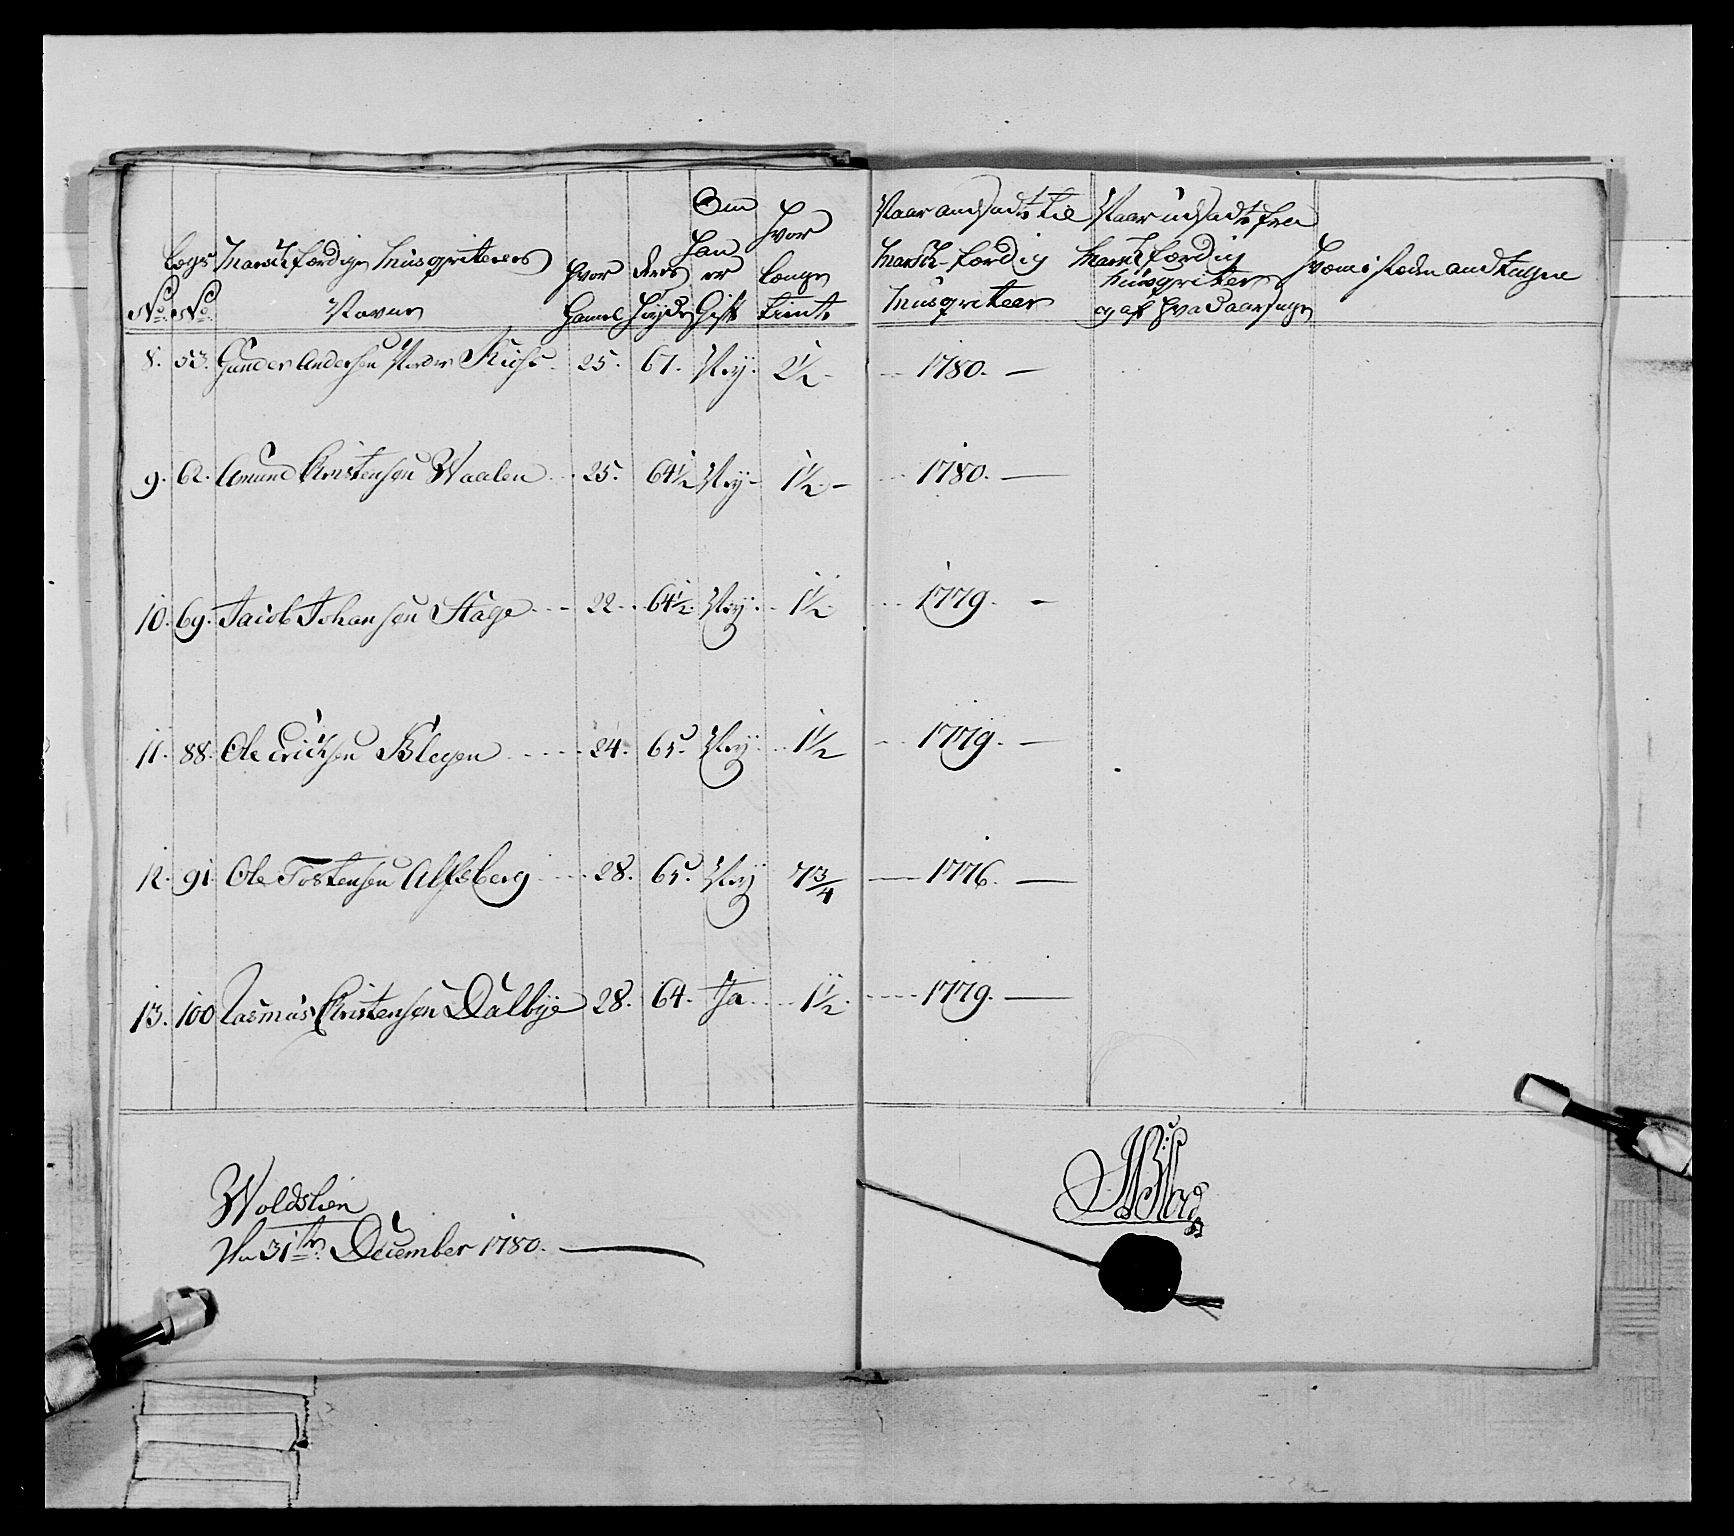 No. Legs No. Marschfærdige Musqviterers Navne Hvor Gammel deres Høyde Om Han er Gift Hvor Længe tient Naar andsadt til Marsch-færdig Musqviteer Naar udsadt fra Marschfærdig Musqviteer og af Hvad aarsage Hvem i steden andtagen
8. 53. Gunder Andersen Nordre 25. 67. Ney. 2½ 1780.
9. 62. Amund Christensen Waalen 25. 64½ Ney 1½ 1780.
10. 69. Jacob Johansen Hage 22. 64½. Ney. 1½. 1779.
11. 88. Ole Erichsen Blegen 24. 65. Ney. 1½ 1779.
12. 91. Ole Tostensen Alfsberg 28. 65. Ney 7¾ 1776.
13. 100 Rasmus Christensen Dalbye 28. 64. Ja 1½. 1779.
Woldslien
den 31te. December 1780.